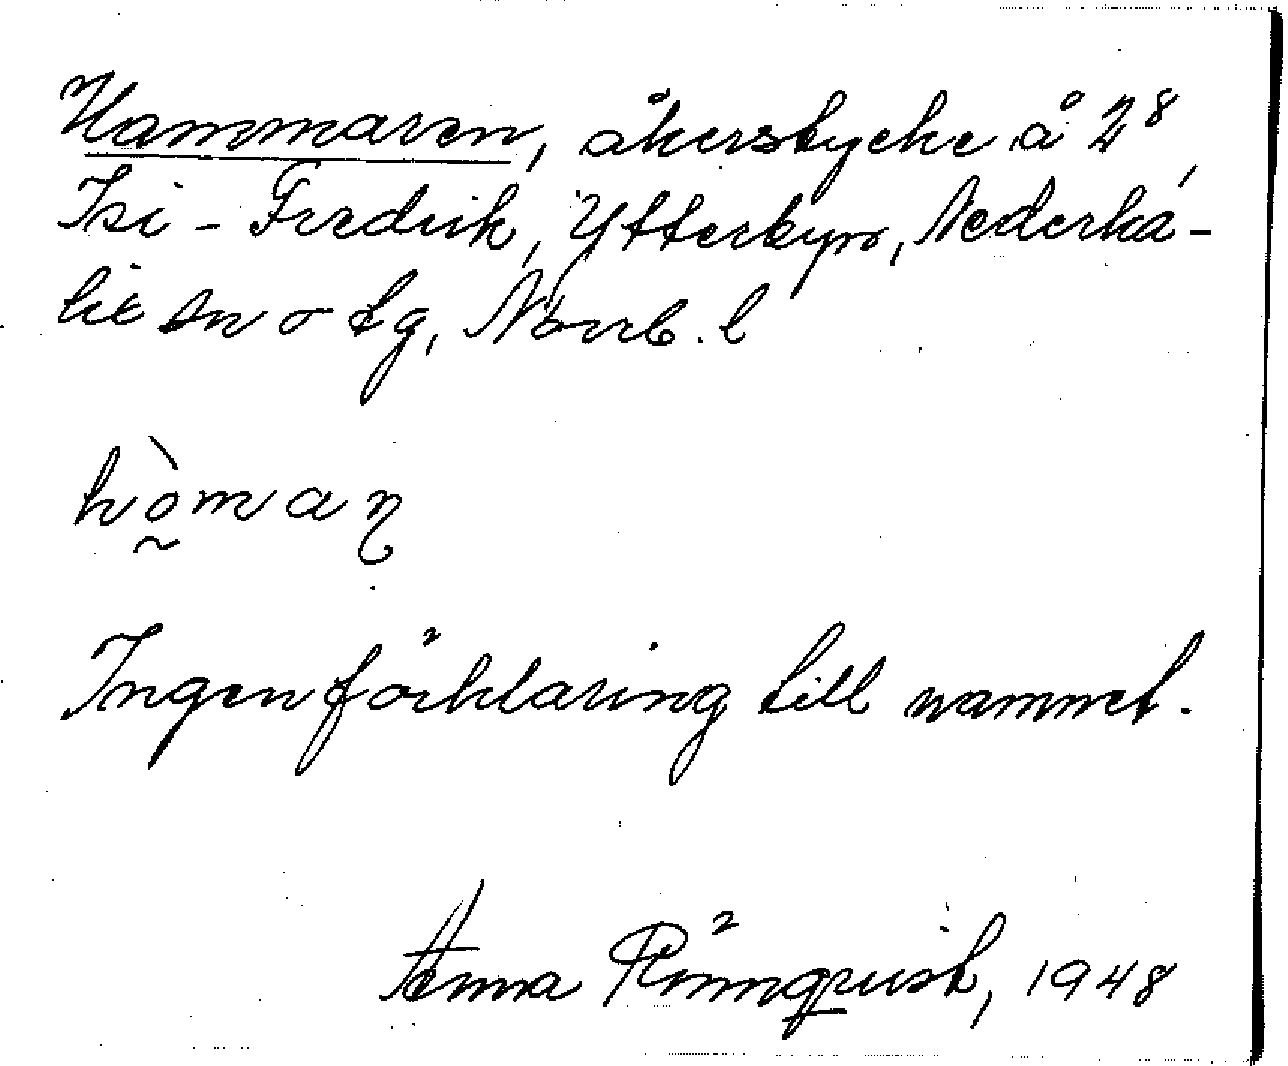 Hammaren, åkerstycke å 2⁸,
Isi-Fredrik, Ytterbyn, Nederka-
lix sn o tg, Norrb. l
hò̰maɳ
Ingen förklaring till namnet.
Anna Rönnqvist, 1948